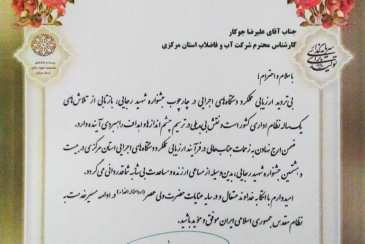 جناب آقای علیرضا جوکار
کارشناس محترم شرکت آب و فاضلاب استان مرکزی
با سلام و احترام؛
بی تردید ارزیابی عملکرد دستگاههای اجرایی در چارچوب جشنواره شهید رجایی، بازتابی از تلاش‌های
یک ساله نظام اداری کشور است و نقش بی بدیلی در ترسیم چشم اندازها و اهداف راهبردی آینده دارد.
ضمن ارج نهادن به زحمات جنابعالی در فرآیند ارزیابی عملکرد دستگاههای اجرایی استان مرکزی در بیست
و هشتمین جشنواره شهید رجایی، بدین وسیله از مساعی ارزنده و مساعدت بی شائبه شما قدردانی می گردد.
امید وارم با اتکا به خداوند متعال و در سایه عنایات حضرت ولی عصر در ادامه مسیر خدمت به
نظام مقدس جمهوری اسلامی ایران موفق و مؤید باشید.